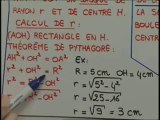 RAYON r ET DE CENTRE H.
CALCUL DE r:
(AOH) RECTANGLE EN H.
THÉORÈME DE PYTHAGORE:
AH² + OH² = OA²
r² + OH² = R²
r² = R² - OH²
Ex:
R = 5 cm OH = 4 cm
r = √5² - 4²
r = √25 - 16
r = √9 = 3 cm